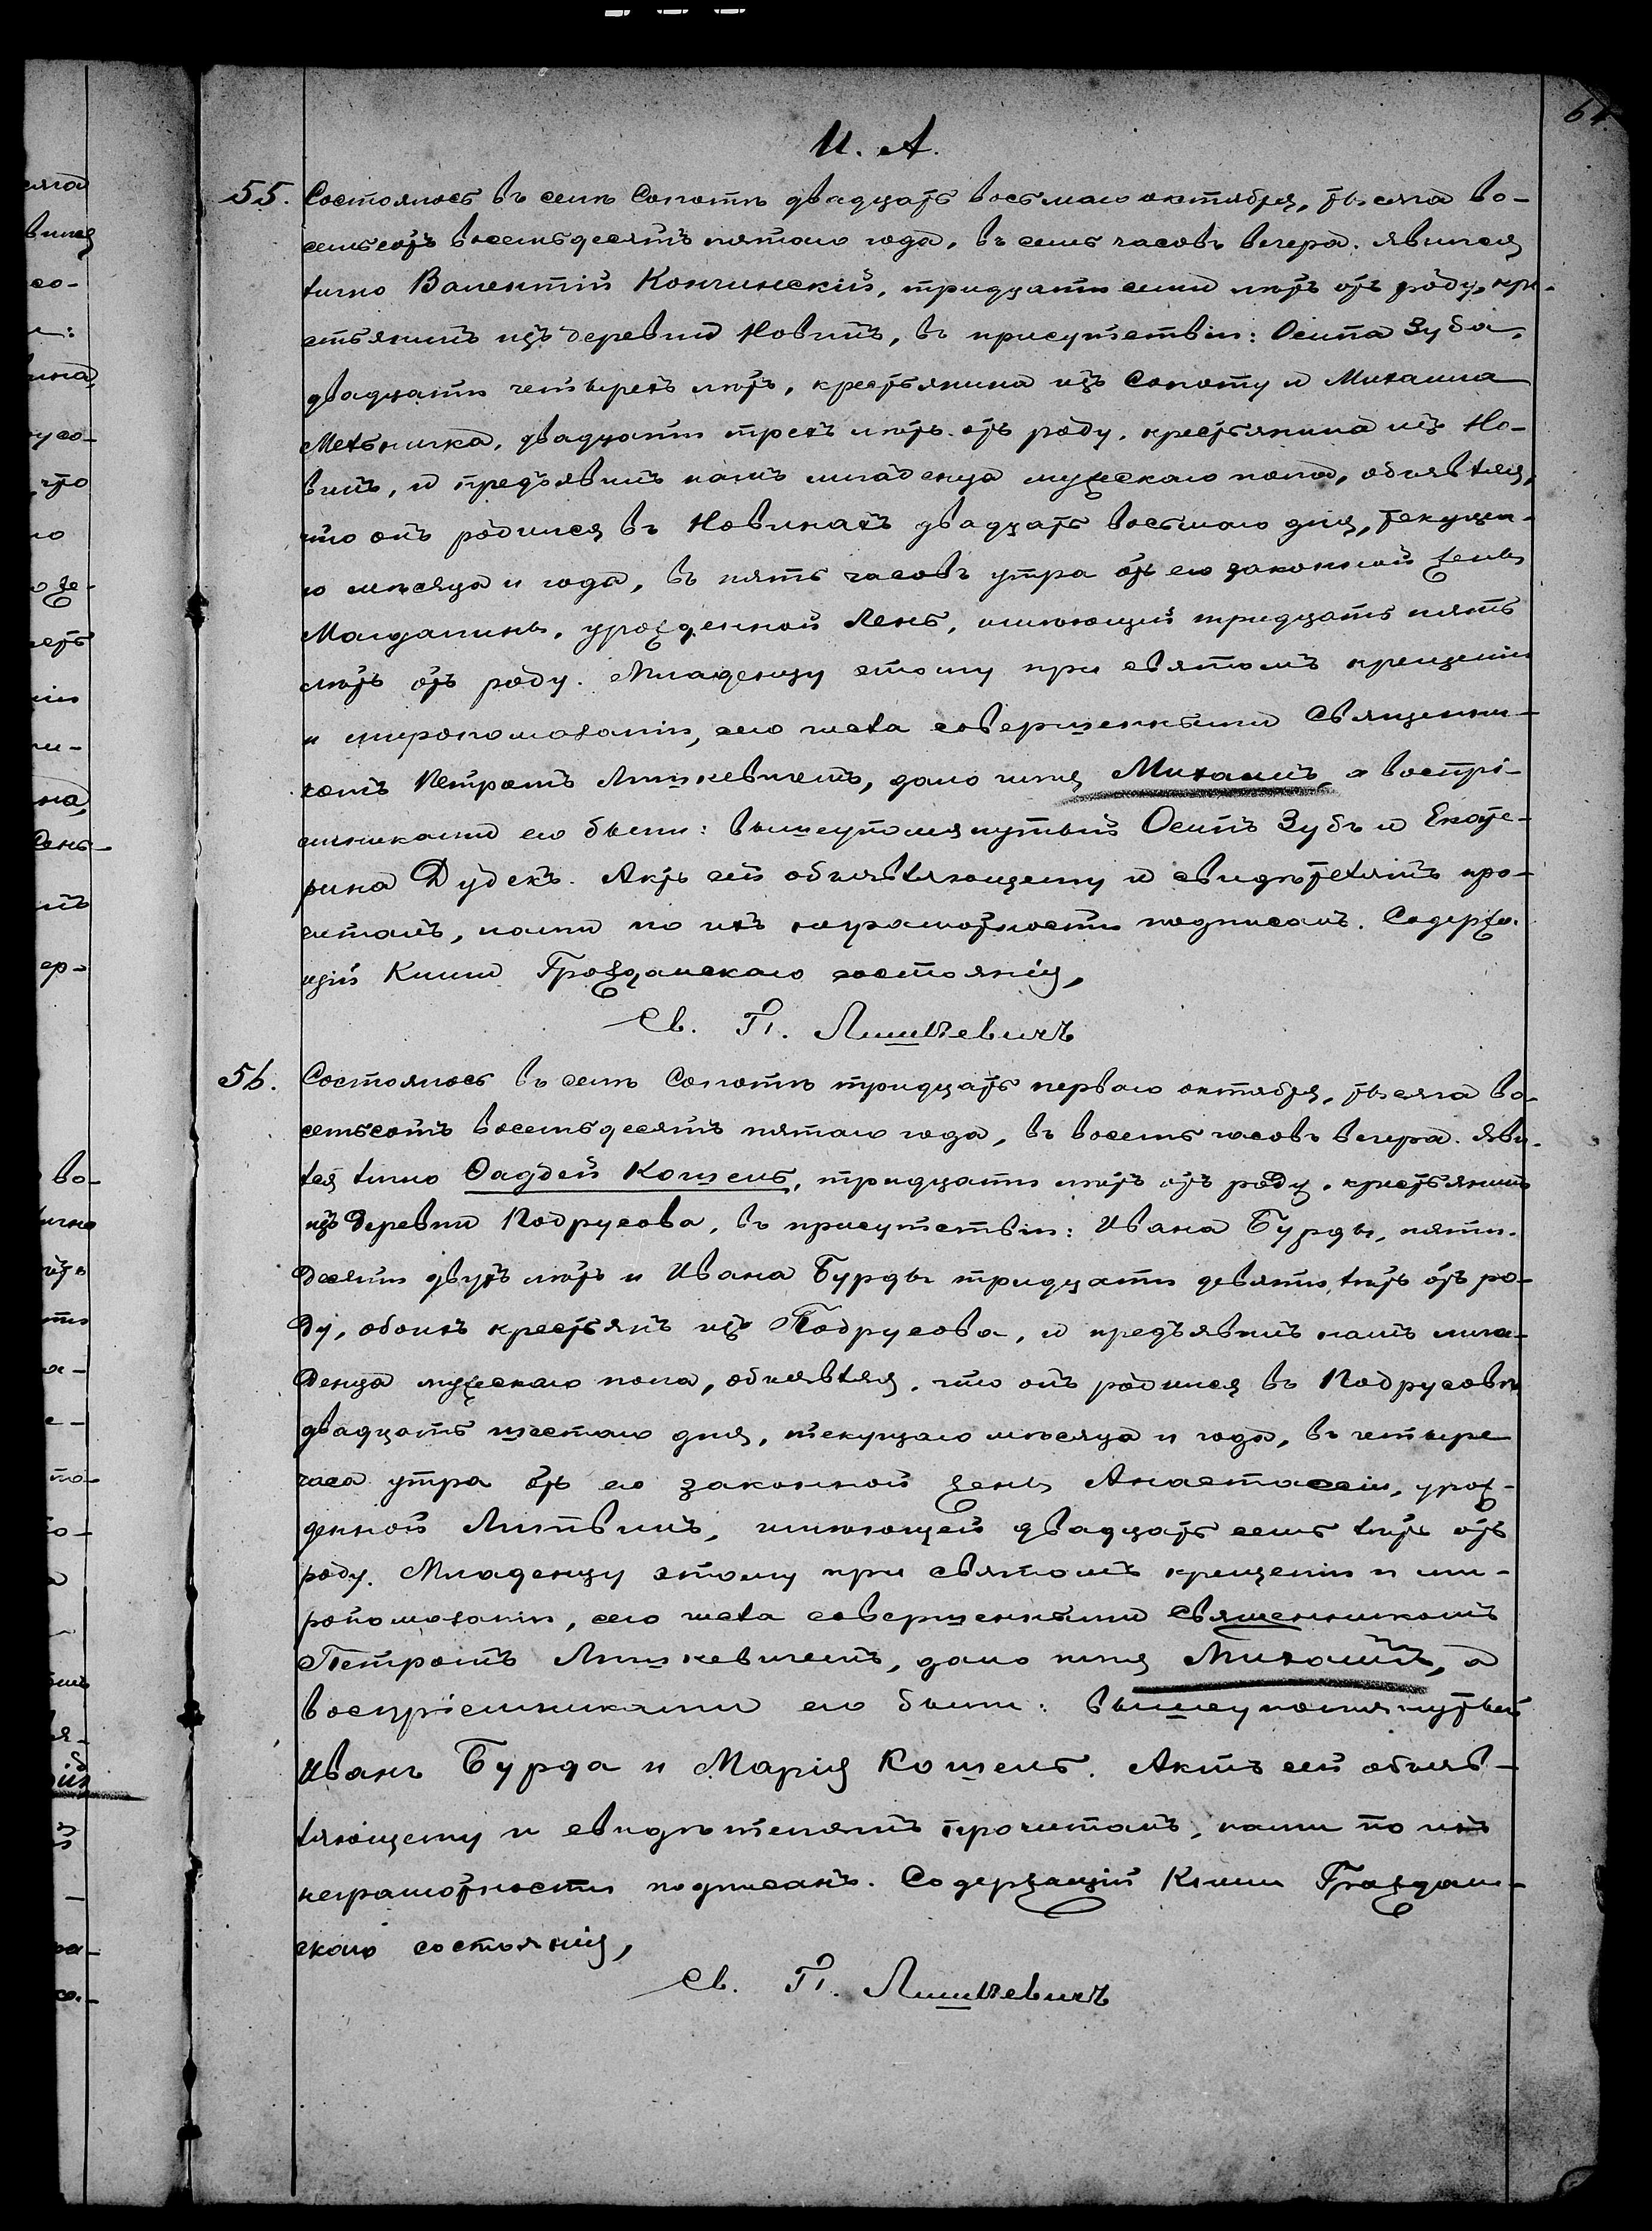 И. А.
55. Состоялось въ селѣ Сопотѣ двадцать восьмаго октября, тысяча во-
семьсотъ восемьдесятъ пятаго года, въ семь часовъ вечера. Явился
лично Валентій Кончинскій, тридцати семи лѣтъ отъ роду, кре-
стьянинъ изъ деревни Новинъ, въ присутствіи: Осипа Зуба,
двадцати четырехъ лѣтъ, крестьянина изъ Сопоту и Михаила
Мельничка, двадцати трехъ лѣтъ отъ роду, крестьянина изъ Но-
винъ, и предъявилъ намъ младенца мужескаго пола, объявляя,
что онъ родился въ Новинахъ двадцать восьмаго дня, текуща-
го мѣсяца и года, въ пять часовъ утра отъ его законной жены
Магдалины, урожденной Лень, имѣющей тридцать пять
лѣтъ отъ роду. Младенцу этому при святомъ крещеніи
и миропомазаніи, сего числа совершенными Священни-
комъ Петромъ Лишкевичемъ, дано имя Михаилъ, а воспрі-
емниками его были: вышеупомянутый Осипъ Зубъ и Екате-
рина Дудекъ. Актъ сей объявляющему и свидѣтелямъ про-
читанъ, нами по ихъ неграмотности подписанъ. Содержа-
щій Книги Гражданскаго состоянія,
Св. П. Лишкевичъ
56. Состоялось въ селѣ Сопотѣ тридцать перваго октября, тысяча во-
семьсотъ восемьдесятъ пятаго года, въ восемь часовъ вечера. Яви-
лся лично Фаддей Кошель, тридцати лѣтъ отъ роду, крестьянинъ
изъ деревни Подрусова, въ присутствіи: Ивана Бурды, пяти-
десяти двухъ лѣтъ и Ивана Бурды тридцати девяти лѣтъ отъ ро-
ду, обоихъ крестьянъ изъ Подрусова, и предъявилъ намъ мла-
денца мужескаго пола, объявляя, что онъ родился въ Подрусовѣ
двадцать шестаго дня, текущаго мѣсяца и года, въ четыре
часа утра отъ его законной жены Анастасіи, урож-
денной Литвинъ, имѣющей двадцать семь лѣтъ отъ
роду. Младенцу этому при святомъ крещеніи и ми-
ропомазаніи, сего числа совершенными Священникомъ
Петромъ Лишкевичемъ, дано имя Михаилъ, а
воспріемниками его были: вышеупомянутый
Иванъ Бурда и Марія Кошель. Актъ сей объяв-
ляющему и свидѣтелямъ прочитанъ, нами по ихъ
неграмотности подписанъ. Содержащій Книги Граждан-
скаго состоянія,
Св. П. Лишкевичъ